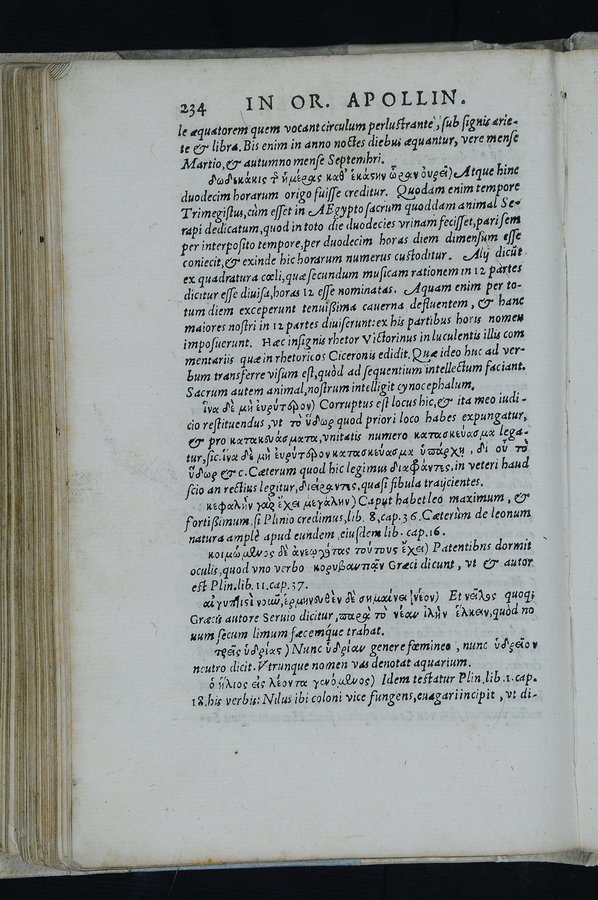 234 IN OR. APOLLIN.
le æquatorem quem vocant circulum perlustrante, sub signis arie-
te & libra. Bis enim in anno noctes diebus æquantur, vere mense
Martio, & autumno mense Septembri.
δωδεκάκις τ ἡμέρας καθ' ἑκάστην ὥραν οὐρεῖ) Atque hinc
duodecim horarum origo fuisse creditur. Quodam enim tempore
Trimegistus, cùm esset in AEgypto sacrum quoddam animal Se-
rapi dedicatum, quod in toto die duodecies vrinam fecisset, pari sem
per interposito tempore, per duodecim horas diem dimensum esse
coniecit, & exinde hic horarum numerus custoditur. Alij dicũt
ex quadratura cœli, quæ secundum musicam rationem in 12 partes
dicitur esse diuisa, horas 12 esse nominatas. Aquam enim per to-
tum diem exceperunt tenuißima cauerna defluentem, & hanc
maiores nostri in 12 partes diuiserunt: ex his partibus horis nomen
imposuerunt. Hæc insignis rhetor Victorinus in luculentis illis com
mentariis quæ in rhetoricos Ciceronis edidit. Quæ ideo huc ad ver-
bum transferre visum est, quòd ad sequentium intellectum faciant.
Sacrum autem animal, nostrum intelligit cynocephalum.
ἵνα δὲ μὴ εὐρύτερον) Corruptus est locus hic, & ita meo iudi-
cio restituendus, vt τὸ ὕδωρ quod priori loco habes expungatur,
& pro κατακευάσματα, vnitatis numero κατασκεύασμα lega-
tur, sic. ἵνα δὲ μὴ εὐρύτερον κατασκεύασμα ὑπάρχῃ, δι οὗ τὸ
ὕδωρ & c. Cæterum quod hic legimus διαφάντες, in veteri haud
scio an rectius legitur, διείραντες, quasi fibula traijcientes.
κεφαλὴν γὰρ ἔχει μεγάλην) Caput habet leo maximum, &
fortißimum, si Plinio credimus, lib. 8, cap. 36. Cæterùm de leonum
natura amplè apud eundem, eiusdem lib. cap. 16.
κοιμώμενος δὲ ἀνεῳγότας τούτους ἔχει) Patentibus dormit
oculis, quod vno verbo κορυβαντιᾷν Græci dicunt, vt & autor
est Plin. lib. 11. cap. 37.
αἰγυπτιστὶ νοῦν, ἑρμηνευθὲν δὲ σημαίνει νέον) Et νεῖλος quoq;
Græcis autore Seruio dicitur, παρὰ τὸ νέαν ἰλὴν ἕλκειν, quòd no
uum secum limum fæcemque trahat.
τρεῖς ὑδρίας) Nunc ὑδρίαν genere fœmineo, nunc ὑδρεῖον
neutro dicit. Vtrunque nomen vas denotat aquarium.
ὁ ἥλιος εἰς λέοντα γενόμενος) Idem testatur Plin. lib. 1. cap.
18. his verbis: Nilus ibi coloni vice fungens, euagari incipit, vt di-